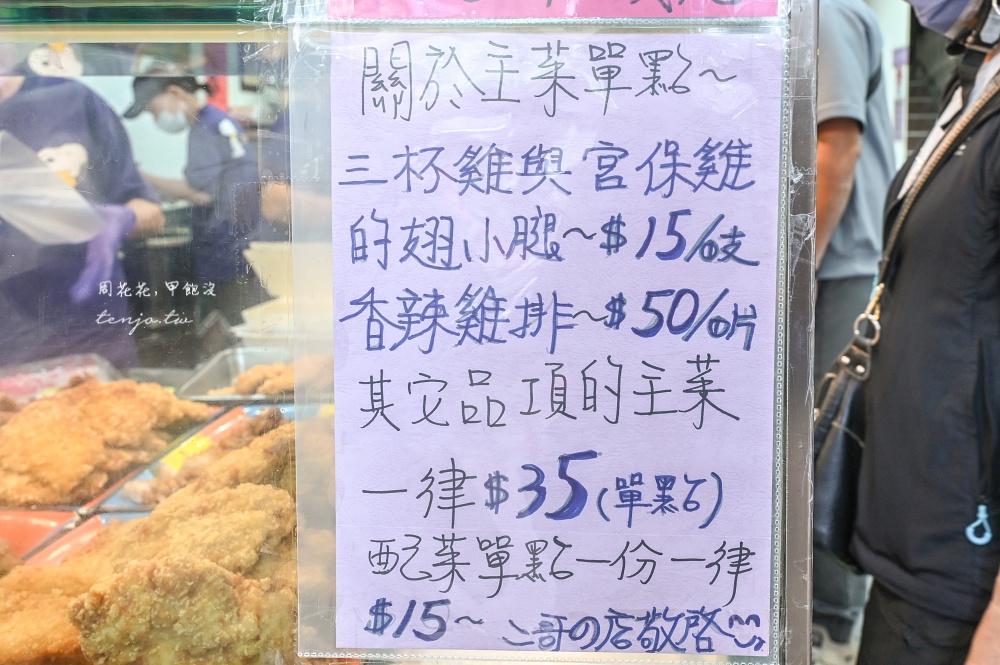 關於主菜單點~
三杯雞與宮保雞
的翅小腿~$15/支
香辣雞排~$50/片
其它品項的主菜
一律$35(單點)
配菜單點一份一律
$15~ 二哥の店敬啓
周花花,甲飽沒
tenjo.tw